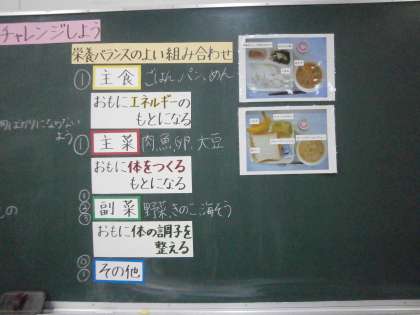 チャレンジしよう
栄養バランスのよい組み合わせ
① 主食 ごはん、パン、めん
おもにエネルギーの
もとになる
① 主菜 肉、魚、卵、大豆
おもに体をつくる
もとになる
副菜 野菜、きのこ、海そう
おもに体の調子を
整える
その他